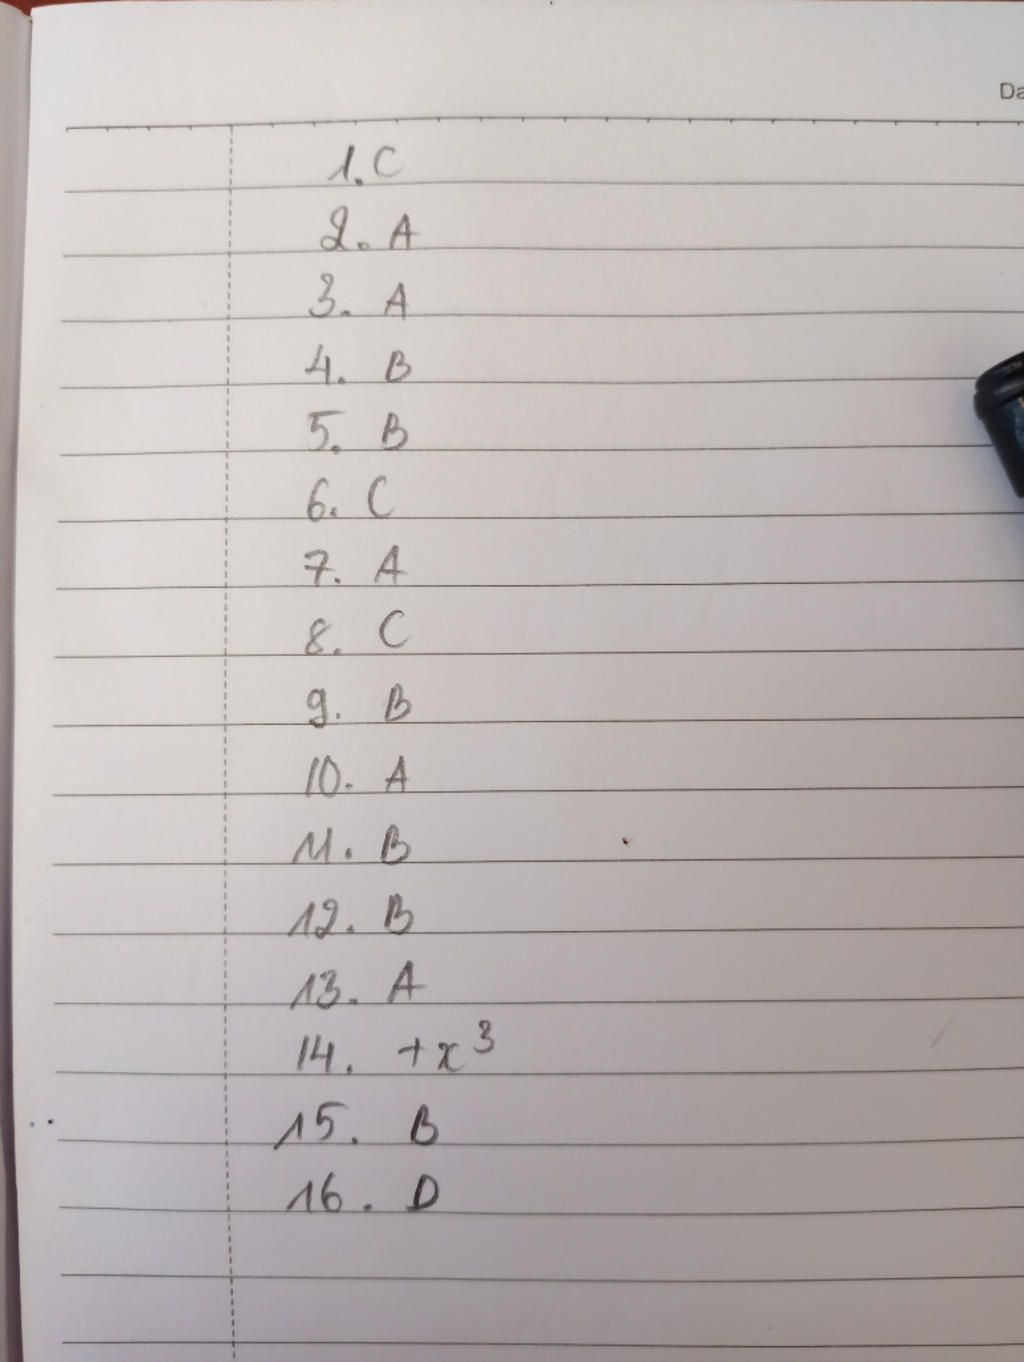 Da
1. C
2. A
3. A
4. B
5. B
6. C
7. A
8. C
9. B
10. A
11. B
12. B
13. A
14. +x³
15. B
16. D